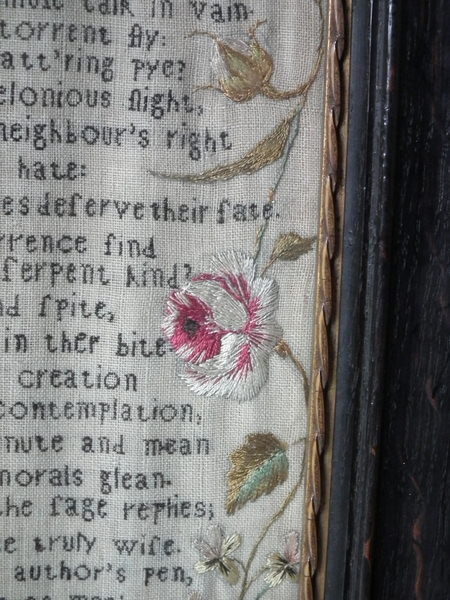 talk in vain
torrent fly:
att'ring pye?
elonious flight,
neighbour's right
hate:
es deserve their fate.
rrence find
serpent kind?
nd spite,
in ther bite
creation
contemplation,
nute and mean
morals glean.
the sage replies;
e truly wise.
author's pen,